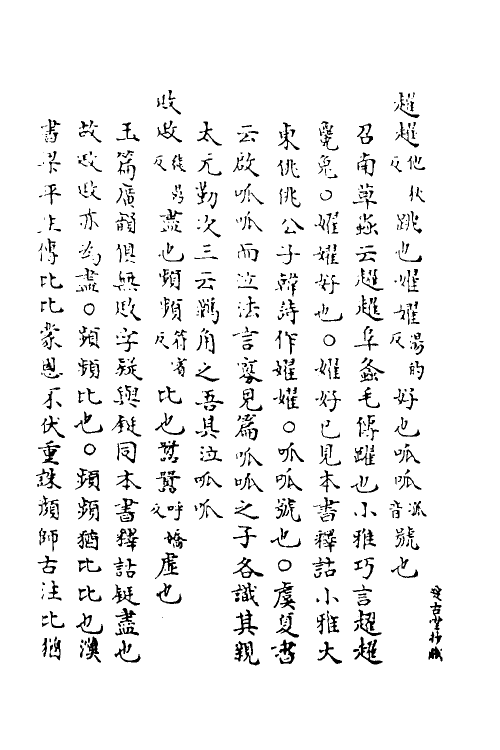 趯趯他狄反跳也嬥嬥湯的反好也呱呱音孤號也
召南草蟲云趯趯阜螽毛傳躍也小雅巧言趯趯
毚兔〇嬥嬥好也〇嬥好已見本書釋詁小雅大
東佻佻公子韓詩作嬥嬥〇呱呱號也〇虞夏書
云啟呱呱而泣法言寡見篇呱呱之子各識其親
太元勤次三云羈角之吾其泣呱呱
徒鼎反盡也頻頻符賓反比也囂囂呼嬌反虛也
玉篇廣韻俱無字疑與鋌同本書釋詁鋌盡也
故亦為盡〇頻頻比也〇頻頻猶比比也漢
書梁平王傳比比蒙恩不伏重誅顏師古注比猶
古堂抄藏